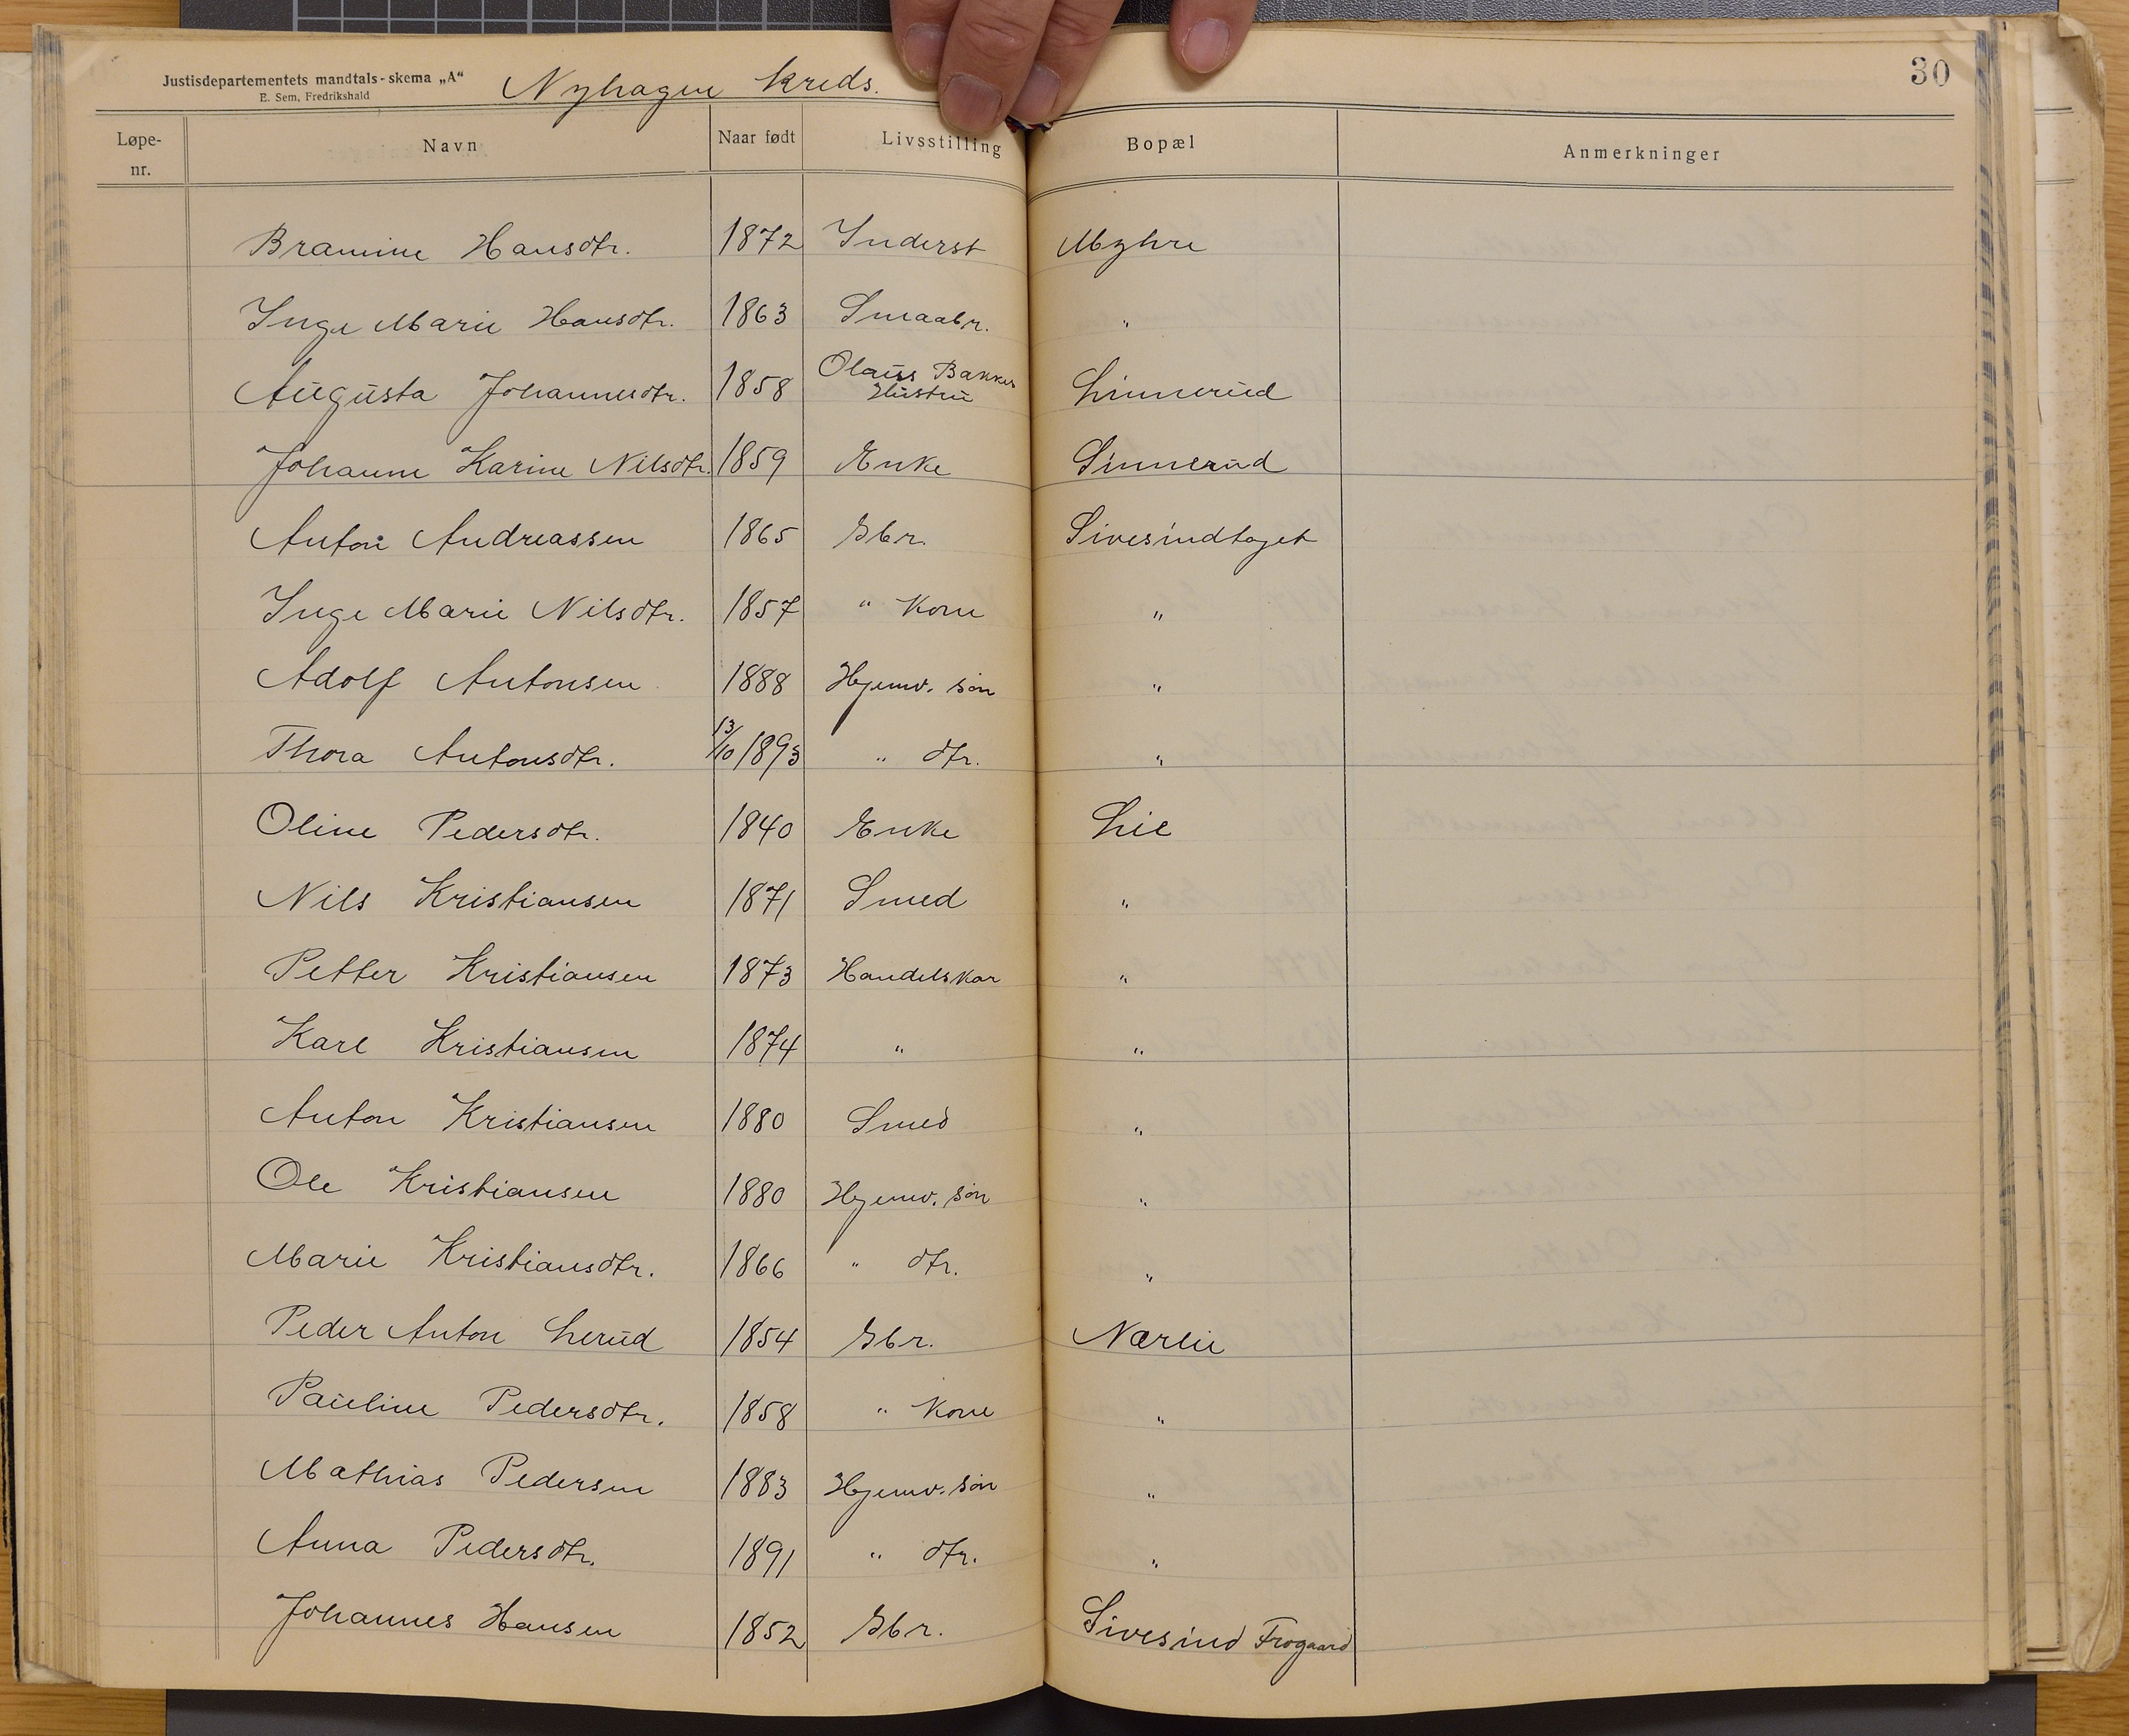 Justisdepartementets mandtals-skema „A“
E. Sem, Fredrikshald
Nyhagen kreds.
30
Løpe-nr. Navn Naar født Livsstilling Bopæl Anmerkninger
Bramine Hansdtr. 1872 Inderst Myhre
Inge Marie Hansdtr. 1863 Smaabr. "
Augusta Johannesdtr. 1858 Olaus Bakkes Hustru Linnerud
Johanne Karine Nilsdtr. 1859 Enke Linnerud
Anton Andreassen 1865 Gbr. Sivesindtaget
Inge Marie Nilsdtr. 1857 " Kone "
Adolf Antonsen 1888 Hjemv. søn "
Thora Antonsdtr. 13/10 1893 " dtr. "
Oline Pedersdtr. 1840 Enke Lie
Nils Kristiansen 1871 Smed "
Petter Kristiansen 1873 Handelskar "
Karl Kristiansen 1874 " "
Anton Kristiansen 1880 Smed "
Ole Kristiansen 1880 Hjemv. søn "
Marie Kristiansdtr. 1866 " dtr. "
Peder Anton Lerud 1854 Gbr. Nærlie
Pauline Pedersdtr. 1858 " Kone "
Mathias Pedersen 1883 Hjemv. søn "
Anna Pedersdtr. 1891 " dtr. "
Johannes Hansen 1852 Gbr. Sivesind Frogaard